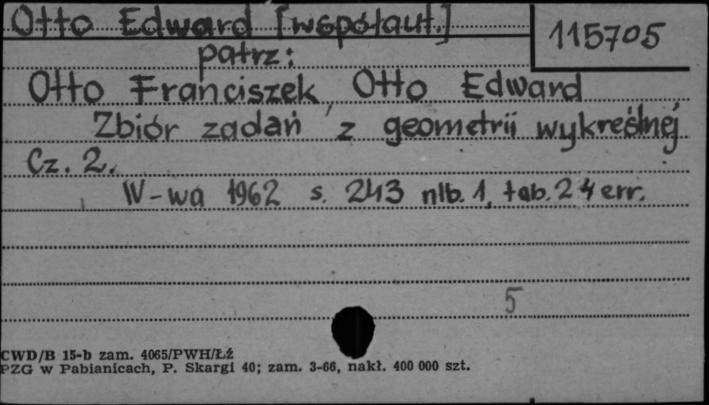 Otto Edward [współaut.]
115705
patrz:
Otto Franciszek, Otto Edward
Zbiór zadań z geometrii wykreślnej
Cz. 2.
W-wa 1962 s. 243 nlb. 1, tab. 24 err.
5
CWD/B 15-b zam. 4065/PWH/Łż
PZG w Pabianicach, P. Skargi 40; zam. 3-66, nakł. 400 000 szt.